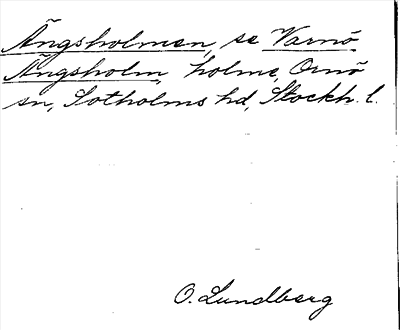 Ängsholmen, se Varnö
Ängsholm, holme, Ornö
sn, Sotholms hd, Stockh. l.
O. Lundberg